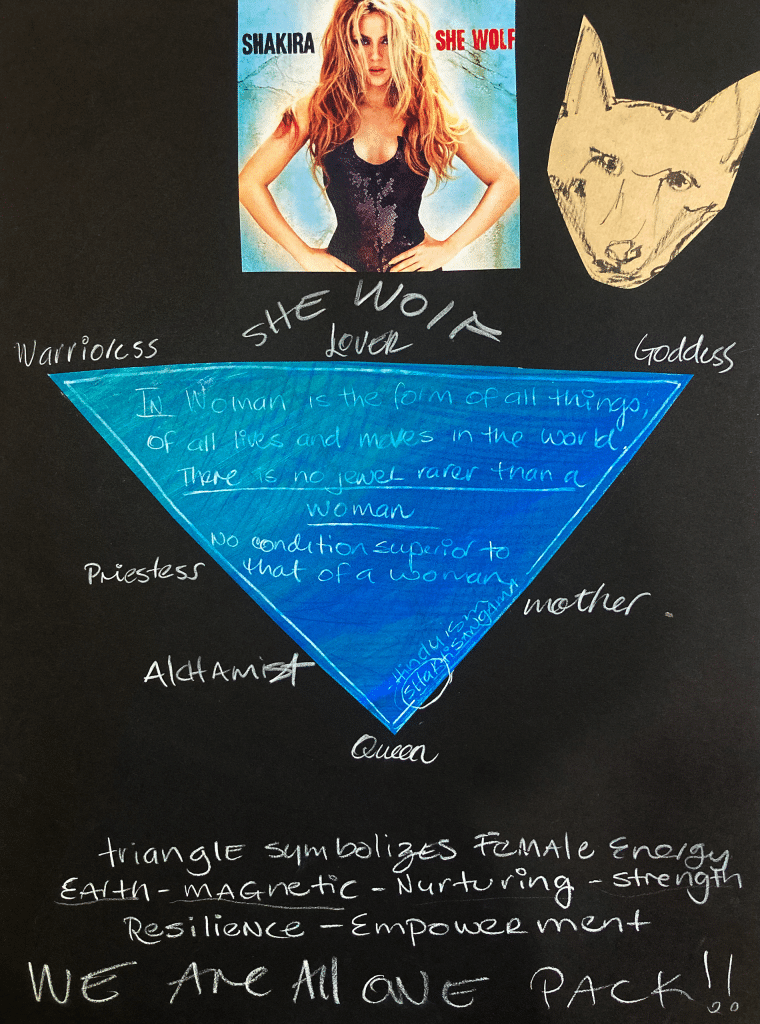 SHAKIRA
SHE WOLF
SHE WOLF
Warrioress
LOVER
Goddess
IN Woman is the form of all things,
of all lives and moves in the world.
There is no jewel rarer than a
woman
No condition superior to
that of a woman
Priestess
mother
Hinduism
AlCHAMist
Queen
triangle symbolizes Female Energy
EARth - MAGnetic - Nurturing - strength
Resilience - Empowerment
WE Are All ONE PACK!!